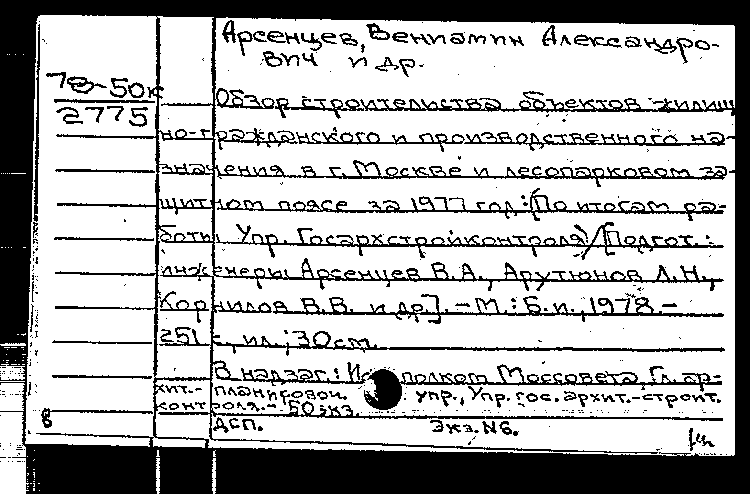 Арсенцев, Вениамин Александро-
вич и др.
78-50к
2775
Обзор строительства объектов жилищ
но-гражданского и производственного на-
значения в г. Москве и лесопарковом за-
щитном поясе за 1977 год: (По итогам ра-
боты Упр. Госархстройконтроля)/[Подгот.:
инженеры Арсенцев В.А., Арутюнов Л.Н.,
Корнилов В.В. и др.]. - М.: Б.и., 1978 -
251 с., ил.; 30см.
В надзаг.: Исполком Моссовета, Гл. ар-
хит.-планировоч. упр., Упр. гос. архит.-строит.
контроля. - 50 экз.
8 ДСП. Экз. N6.